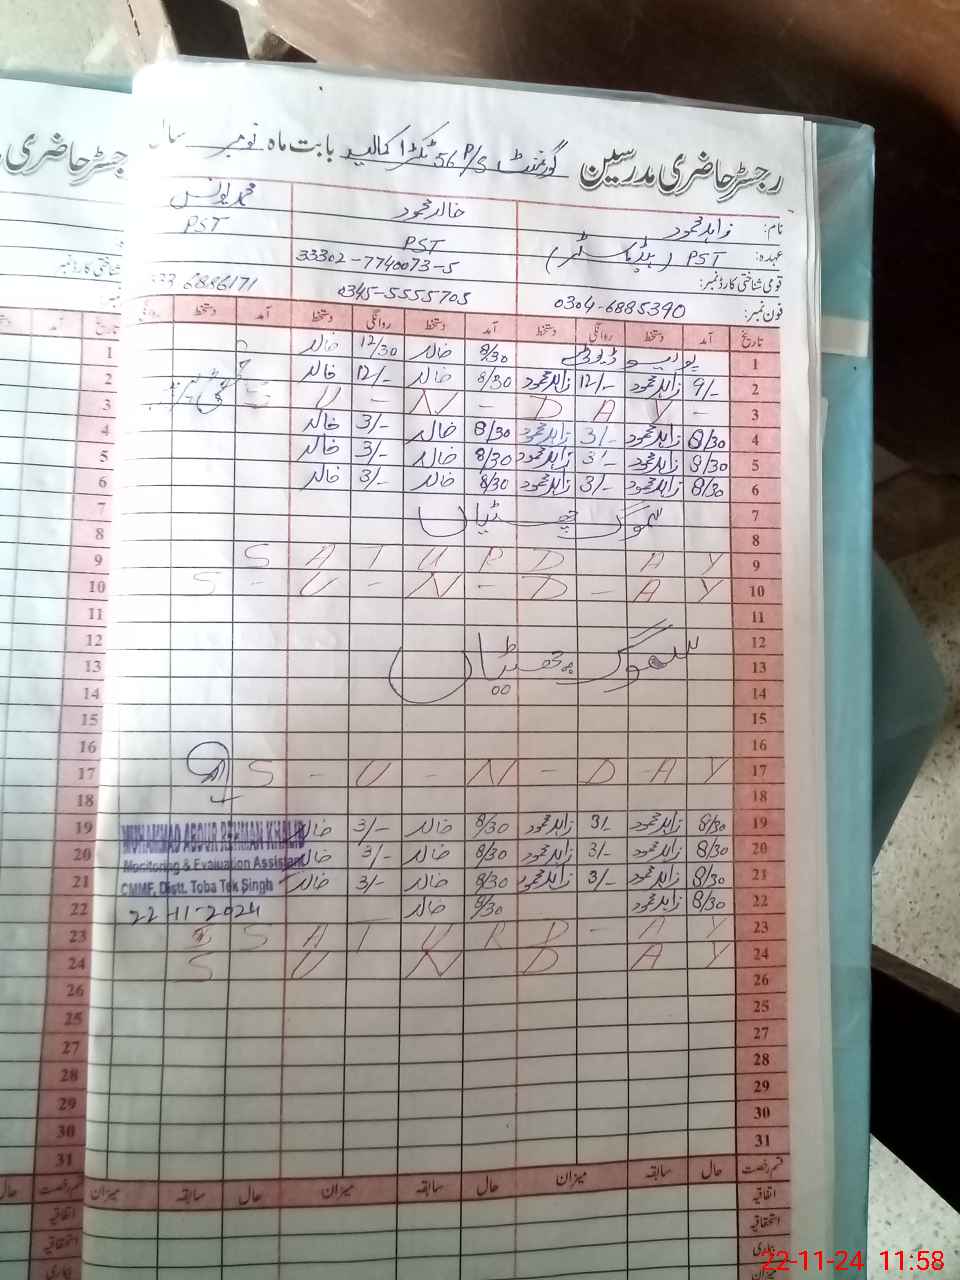 رجسٹر حاضری مدرسین گورنمنٹ P/S 56 ٹکڑا کمالیہ بابت ماہ نومبر سال
نام: زاہد محمود خالد محمود محمد یونس
عہدہ: PST (ہیڈ ماسٹر) PST PST
قومی شناختی کارڈ نمبر: 33302-7740073-5
فون نمبر: 0304-6885390 0345-5555705 333 6886171
تاریخ آمد دستخط روانگی دستخط آمد دستخط روانگی دستخط آمد دستخط روانگی
1 پولیو ڈیوٹی 8/30 خالد 12/30 خالد
2 9/- زاہد محمود 12/- زاہد محمود 8/30 خالد 12/- خالد
3 S U - N - D A Y -
4 8/30 زاہد محمود 3/- زاہد محمود 8/30 خالد 3/- خالد
5 8/30 زاہد محمود 3/- زاہد محمود 8/30 خالد 3/- خالد
6 8/30 زاہد محمود 3/- زاہد محمود 8/30 خالد 3/- خالد
7 سموگ چھٹیاں
8
9 S A T U R D A Y
10 S - U - N - D - A Y
11
12 سموگ چھٹیاں
13
14
15
16
17 S - U - N - D - A Y
18
19 8/30 زاہد محمود 3/- زاہد محمود 8/30 خالد 3/- خالد
20 8/30 زاہد محمود 3/- زاہد محمود 8/30 خالد 3/- خالد
21 8/30 زاہد محمود 3/- زاہد محمود 8/30 خالد 3/- خالد
22 8/30 زاہد محمود 8/30 خالد
MUHAMMAD ABDUR REHMAN KHALID
Monitoring & Evaluation Assistant
CMMF, Distt. Toba Tek Singh
22-11-2024
23 S A T U R D - A Y
24 S U N D A Y
26
25
27
28
29
30
31
قسم رخصت حال سابقہ میزان حال سابقہ میزان حال سابقہ میزان
اتفاقیہ
استحقاقیہ
بیماری
میزان
22-11-24 11:58